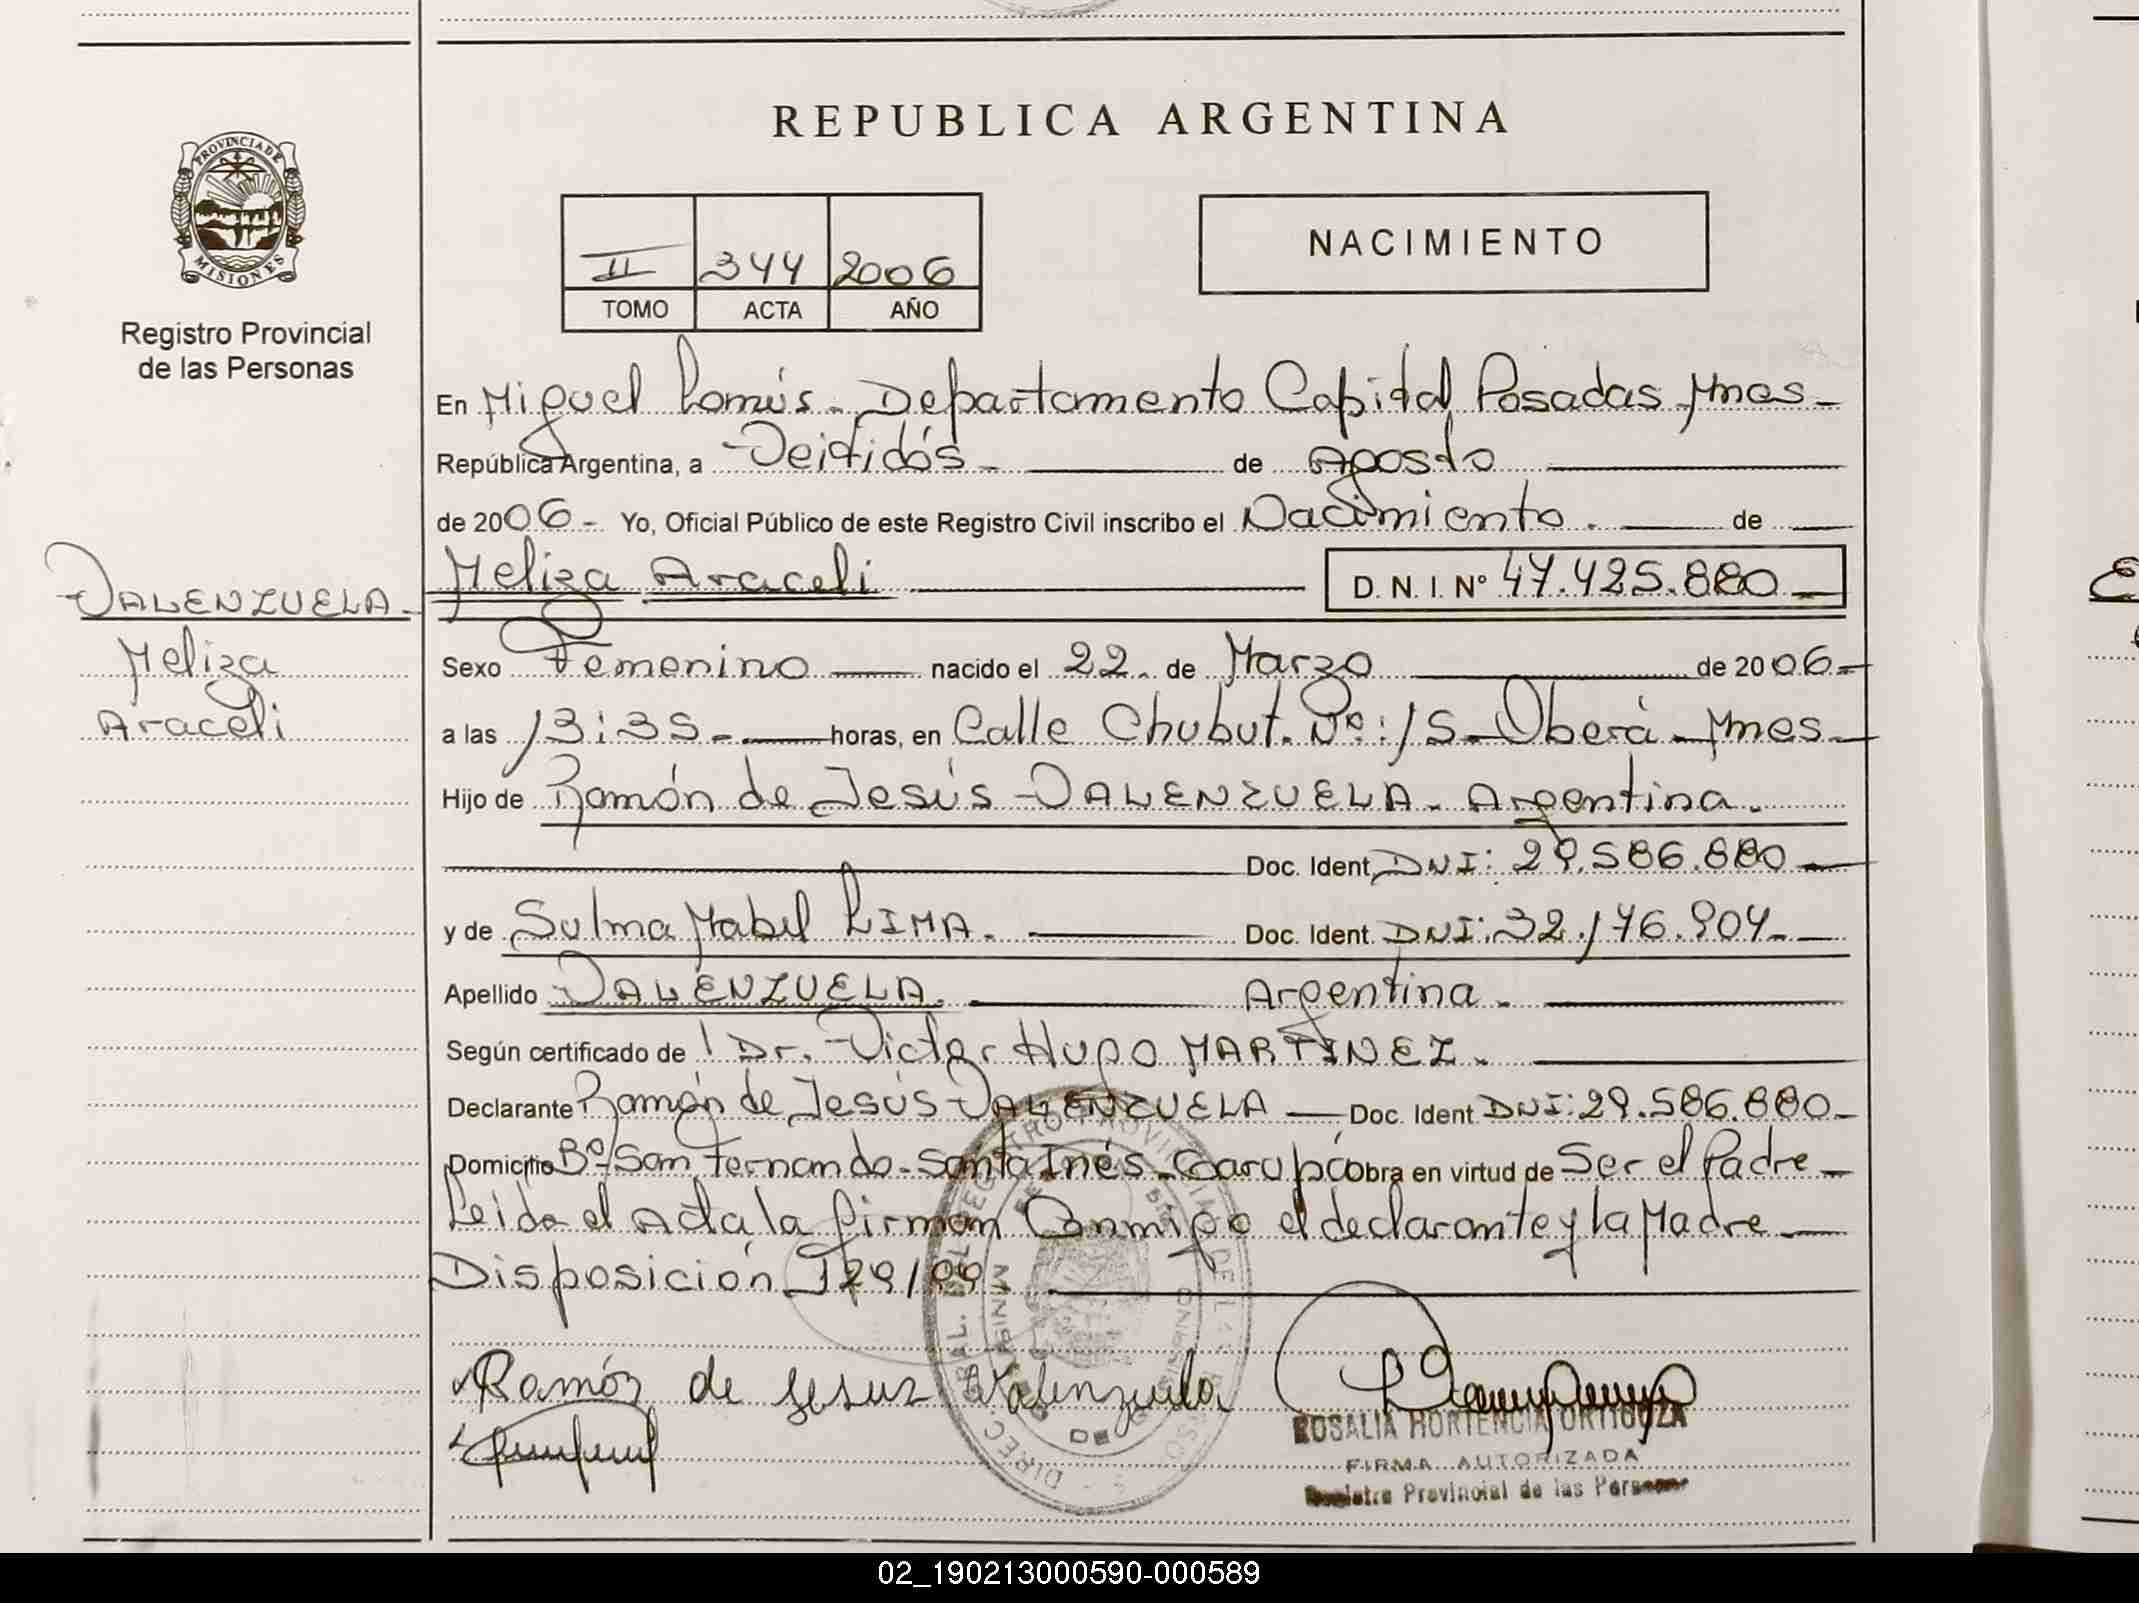 REPUBLICA ARGENTINA
PROVINCIA DE
MISIONES
Registro Provincial
de las Personas
II 344 2006
TOMO ACTA AÑO
NACIMIENTO
En Miguel Lanús - Departamento Capital Posadas Mnes -
República Argentina, a Veitidós - de Agosto
de 2006 - Yo, Oficial Público de este Registro Civil inscribo el Nacimiento. de
VALENZUELA -
Meliza
Araceli
Meliza Araceli D. N. I. Nº 47.425.880
Sexo Femenino nacido el 22 - de Marzo de 2006 -
a las 13:35 - horas, en Calle Chubut. Nº: 15 - Oberá - Mnes -
Hijo de Ramón de Jesús VALENZUELA - Argentina.
Doc. Ident. DNI: 29.586.880
y de Sulma Mabel LIMA. Doc. Ident. DNI: 32.176.904 -
Apellido VALENZUELA. Argentina.
Según certificado de Dr. Victor Hugo MARTINEZ.
Declarante Ramón de Jesús VALENZUELA Doc. Ident. DNI: 29.586.880 -
Domicilio Bº San Fernando - Santa Inés - Garupá obra en virtud de Ser el Padre
Leida el Acta la firman Conmigo el declarante y la Madre
Disposición 129/99
Ramón de Jesus Valenzuela
ROSALIA HORTENCIA ORTIGOZA
FIRMA AUTORIZADA
Registro Provincial de las Personas
02_190213000590-000589